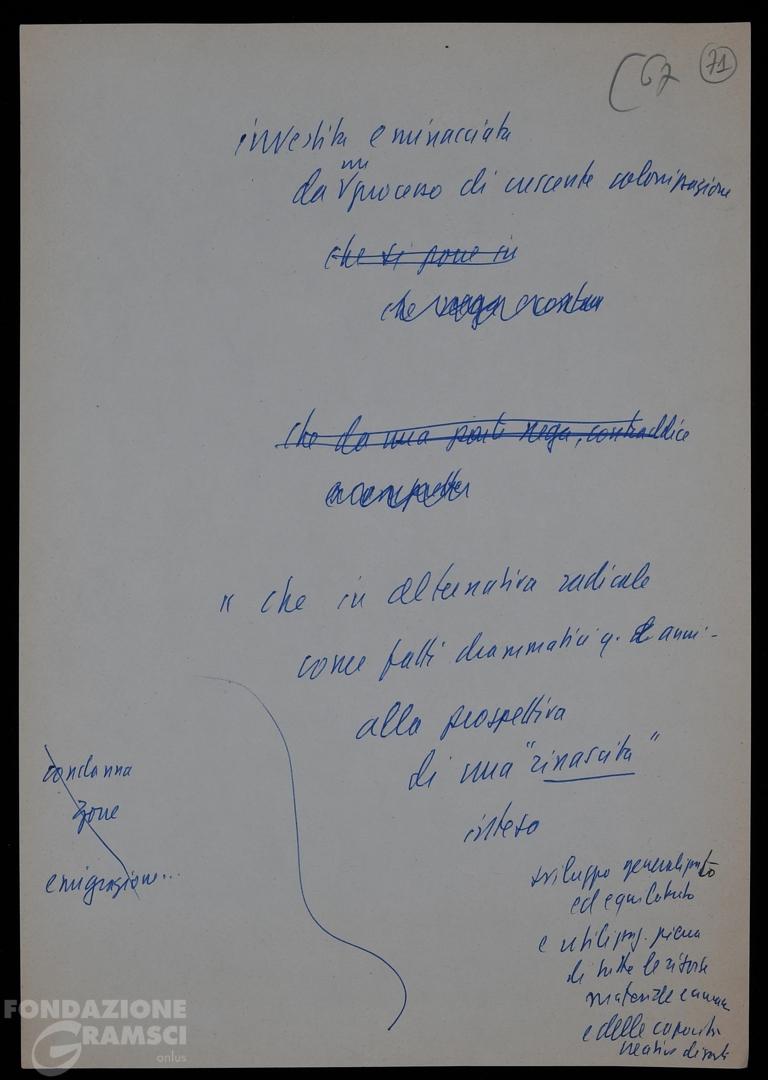 67 71
investita e minacciata
un
da processo di crescente colonizzazione
che si pone in
che nega e
che da una parte nega, contraddice
" che in alternativa radicale
come fatti drammatici q. anni -
alla prospettiva
di una "rinascita"
inteso
condanna
zone
emigrazione...
sviluppo generalizzato
ed equilibrato
e utilizzaz. piena
di tutte le risorse
materiale e umane
e delle capacità
creative di
FONDAZIONE
GRAMSCI
onlus